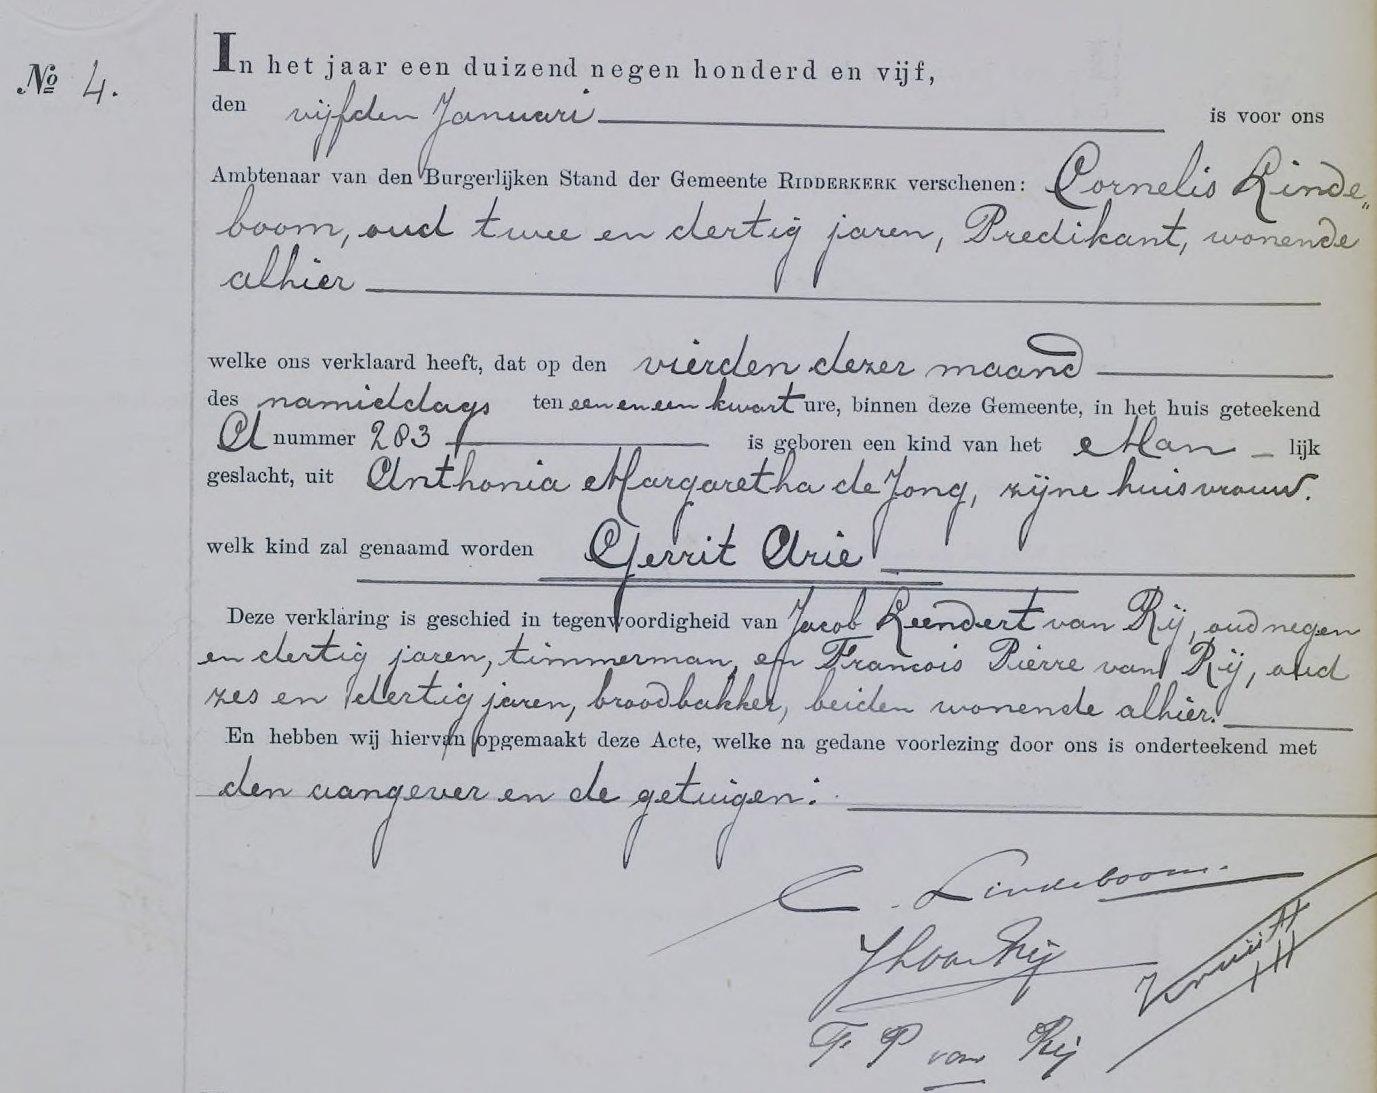 Nº 4.
In het jaar een duizend negen honderd en vijf,
den vijfden Januari is voor ons
Ambtenaar van den Burgerlijken Stand der Gemeente RIDDERKERK verschenen: Cornelis Linde„
boom, oud twee en dertig jaren, Predikant, wonende
alhier
welke ons verklaard heeft, dat op den vierden dezer maand
des namiddags ten een en een kwart ure, binnen deze Gemeente, in het huis geteekend
A nummer 283 is geboren een kind van het Man - lijk
geslacht, uit Anthonia Margaretha de Jong, zijne huisvrouw.
welk kind zal genaamd worden Gerrit Arie
Deze verklaring is geschied in tegenwoordigheid van Jacob Leendert van Rij, oud negen
en dertig jaren, timmerman, en Francois Pierre van Rij, oud
zes en dertig jaren, broodbakker, beiden wonende alhier.
En hebben wij hiervan opgemaakt deze Acte, welke na gedane voorlezing door ons is onderteekend met
den aangever en de getuigen:
C. Lindeboom.
JLvanRij
F P van Rij